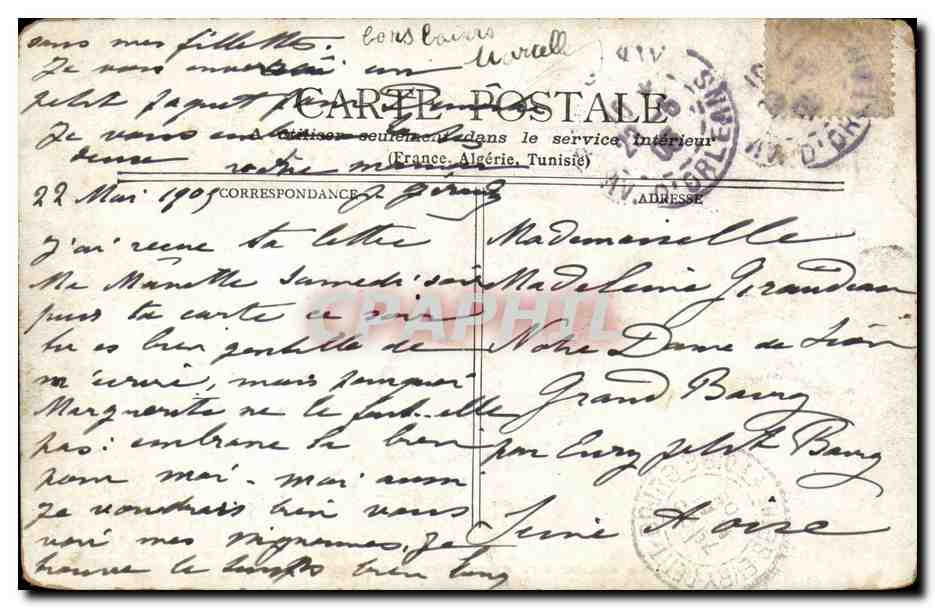 sans mes fillettes.
Je vous enverrai un
petit paquet
Je vous
votre maman
bons baisers
Marcelle
CARTE POSTALE
A utiliser seulement dans le service intérieur
(France, Algérie, Tunisie)
CORRESPONDANCE
ADRESSE
22 Mai 1905
J'ai reçue ta lettre
Ma Manette Samedi soir
puis ta carte ce soir
tu es bien gentille de
m'écrire, mais pourquoi
Marguerite ne le fait-elle
pas: embrasse la bien
pour moi - moi aussi
je voudrais bien vous
voir mes mignonnes, je
trouve le temps bien long
Mademoiselle
Madeleine Giraudeau
Notre Dame de Sion
Grand Bourg
par Evry petit Bourg
Seine & Oise
AV. D'ORLEANS
CPAPHIL